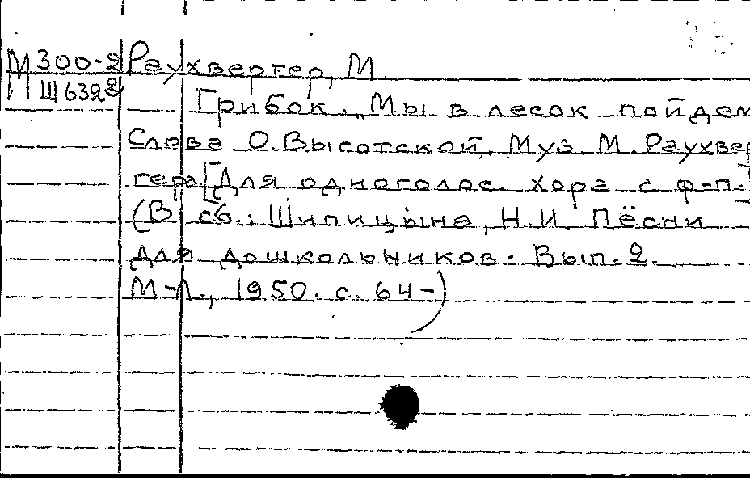 М 300-2 Раухвергер, М
Ш 6392
Грибок. Мы в лесок пойдем
Слова О. Высотской, Муз. М. Раухвер
гера [Для одноголос. хора с ф-п.]
(В сб.: Шипицына, Н.И. Песни
для дошкольников. Вып. 2.
М-Л., 1950. с. 64-)